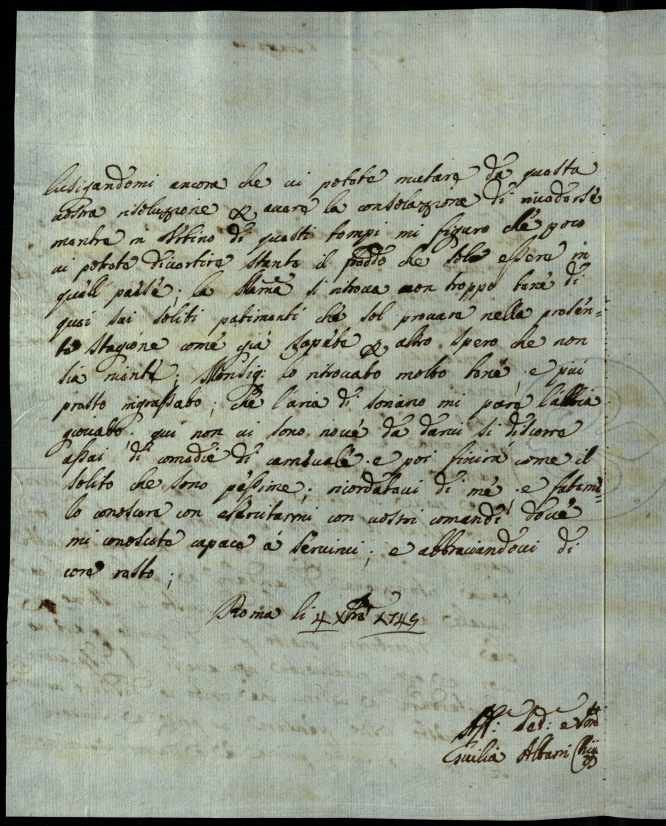 lusigandomi ancora che vi potete mutare da questa
vostra risoluzzione & avere la consolazzione di rivedersi
mentre in Urbino di questi tempi mi figuro che poco
vi potete divertire stante il freddo che sole essere in
queli paesé; la si ritrova non troppo bene di
quei sui soliti patimenti che sol provare nella presén=
te stagione come già sapéte & altro spero che non
sia niente; Monsig: lo ritrovato molto bene; e più
presto ingrassato; che l'aria di soriano mi pare l'abbia
giovato: qui non vi sono nove da darvi si discorre
assai di comedie di carnevale e poi finirà come il
solito che sono pessime; ricordatevi di me e fatemi=
lo conoscere con esercitarmi con vostri comandi dove
mi conoscete capace à servirvi; e abbraciandovi di
core resto;
Roma li 4 Xbre 1749
Aff:
Giulia Albani